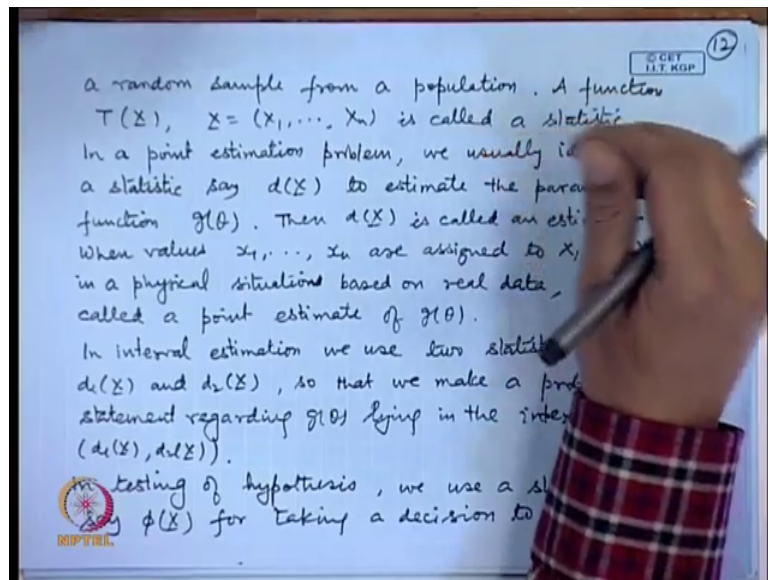 12
© CET
I.I.T. KGP
a random sample from a population. A function
T(X), X = (X₁, ..., Xₙ) is called a statistic
In a point estimation problem, we usually
a statistic say d(X) to estimate the
function g(θ). Then d(X) is called an
When values x₁, ..., xₙ are assigned to X₁
in a physical situations based on real data,
called a point estimate of g(θ).
In interval estimation we use two
d₁(X) and d₂(X), so that we make a
statement regarding g(θ) lying in the
(d₁(X), d₂(X)).
In testing of hypothesis, we use a
say φ(X) for taking a decision to
NPTEL